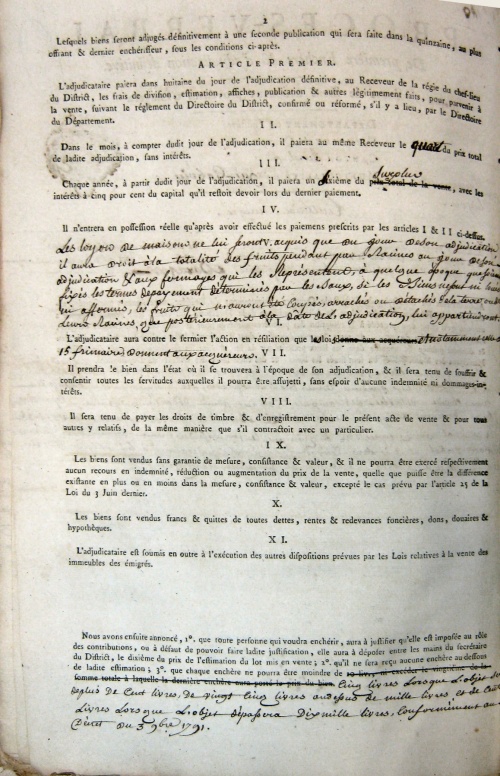 2
Lesquels biens seront adjugés définitivement à une seconde publication qui sera faite dans la quinzaine, au plus
offrant & dernier enchérisseur, sous les conditions ci-après.
ARTICLE PREMIER.
L'adjudicataire paiera dans huitaine du jour de l'adjudication définitive, au Receveur de la régie du chef-lieu
du District, les frais de division, estimation, affiches, publication & autres légitimement faits, pour parvenir à
la vente, suivant le réglement du Directoire du District, confirmé ou réformé, s'il y a lieu, par le Directoire
du Département.
II.
Dans le mois, à compter dudit jour de l'adjudication, il paiera au même Receveur le quart du prix total
de ladite adjudication, sans intérêts.
III.
surplus
Chaque année, à partir dudit jour de l'adjudication, il paiera un sixième du prix total de la vente, avec les
intérêts à cinq pour cent du capital qu'il restoit devoir lors du dernier paiement.
IV.
Il n'entrera en possession réelle qu'après avoir effectué les paiemens prescrits par les articles I & II ci-dessus.
Les loyers de maisons ne lui seront acquis que du jour de son adjudication
il aura droit à la totalité des fruits pendant par Racines au jour de son
adjudication & aux fermages qui les Représentent, à quelque époque que soient
fixés les termes de payement déterminés par les baux, si les biens
affermés, les fruits qui n'auront été coupés, arrachés ou détachés de la terre ou de
leurs Racines, que postérieurement à la date de l'adjudication, lui appartiendront.
VI.
L'adjudicataire aura contre le fermier l'action en résiliation que les lois donne aux acquéreurs
15 frimaire donnent aux acquereurs. VII.
Il prendra le bien dans l'état où il se trouvera à l'époque de son adjudication, & il sera tenu de souffrir &
consentir toutes les servitudes auxquelles il pourra être assujetti, sans espoir d'aucune indemnité ni dommages-in-
térêts.
VIII.
Il sera tenu de payer les droits de timbre & d'enregistrement pour le présent acte de vente & pour tous
autres y relatifs, de la même manière que s'il contractoit avec un particulier.
IX.
Les biens sont vendus sans garantie de mesure, consistance & valeur, & il ne pourra être exercé respectivement
aucun recours en indemnité, réduction ou augmentation du prix de la vente, quelle que puisse être la différence
existante en plus ou en moins dans la mesure, consistance & valeur, excepté le cas prévu par l'article 25 de la
Loi du 3 Juin dernier.
X.
Les biens sont vendus francs & quittes de toutes dettes, rentes & redevances foncières, dons, douaires &
hypothèques.
XI.
L'adjudicataire est soumis en outre à l'exécution des autres dispositions prévues par les Lois relatives à la vente des
immeubles des émigrés.
Nous avons ensuite annoncé, 1°. que toute personne qui voudra enchérir, aura à justifier qu'elle est imposée au rôle
des contributions, ou à défaut de pouvoir faire ladite justification, elle aura à déposer entre les mains du secrétaire
du District, le dixième du prix de l'estimation du lot mis en vente ; 2°. qu'il ne sera reçu aucune enchère au dessous
de ladite estimation ; 3°. que chaque enchère ne pourra être moindre de 10 livr. ni excéder le vingtième de la
somme totale à laquelle la dernière enchère aura porté le prix du bien. Cinq livres Lorsque L'objet
deplus de Cent livres, de vingt Cinq livres au dessus de mille livres, et de Cent
Livres Lorsque L'objet dépassera Dix mille livres, Conformément au
Décret du 3 9bre 1791.